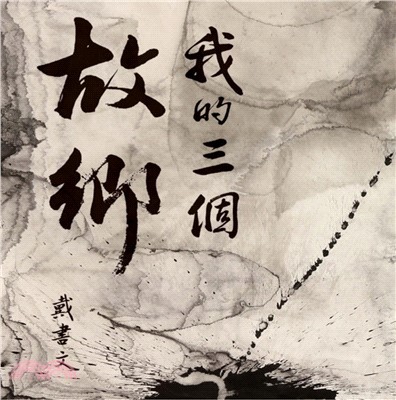 我的三個
故鄉
戴書文